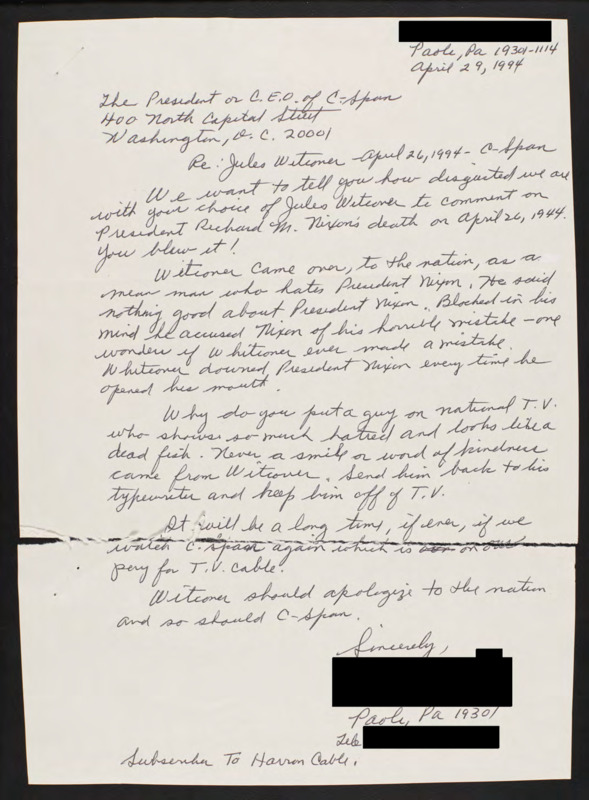 Paoli, Pa 19301-1114
April 29, 1994
The President or C.E.O. of C-Span
400 North Capital Street
Washington, D.C. 20001
Re: Jules Witcover - April 26, 1994 - C-Span
We want to tell you how disgusted we are
with your choice of Jules Witcover to comment on
President Richard M. Nixon's death on April 26, 1944.
You blew it!
Witcover came over, to the nation, as a
mean man who hates President Nixon. He said
nothing good about President Nixon. Blocked-in his
mind he accused Nixon of his horrible mistake - one
wonders if Whitcover ever made a mistake.
Whitcover downed President Nixon every time he
opened his mouth.
Why do you put a guy on national T.V.
who shows so much hatred and looks like a
dead fish. Never a smile or word of kindness
came from Witcover. Send him back to his
typewriter and keep him off of T.V.
It will be a long time, if ever, if we
watch C-Span again which is on our
pay for T.V. cable.
Witcover should apologize to the nation
and so should C-Span.
Sincerely,
Paoli, Pa 19301
Tele
Subscriber To Harron Cable.